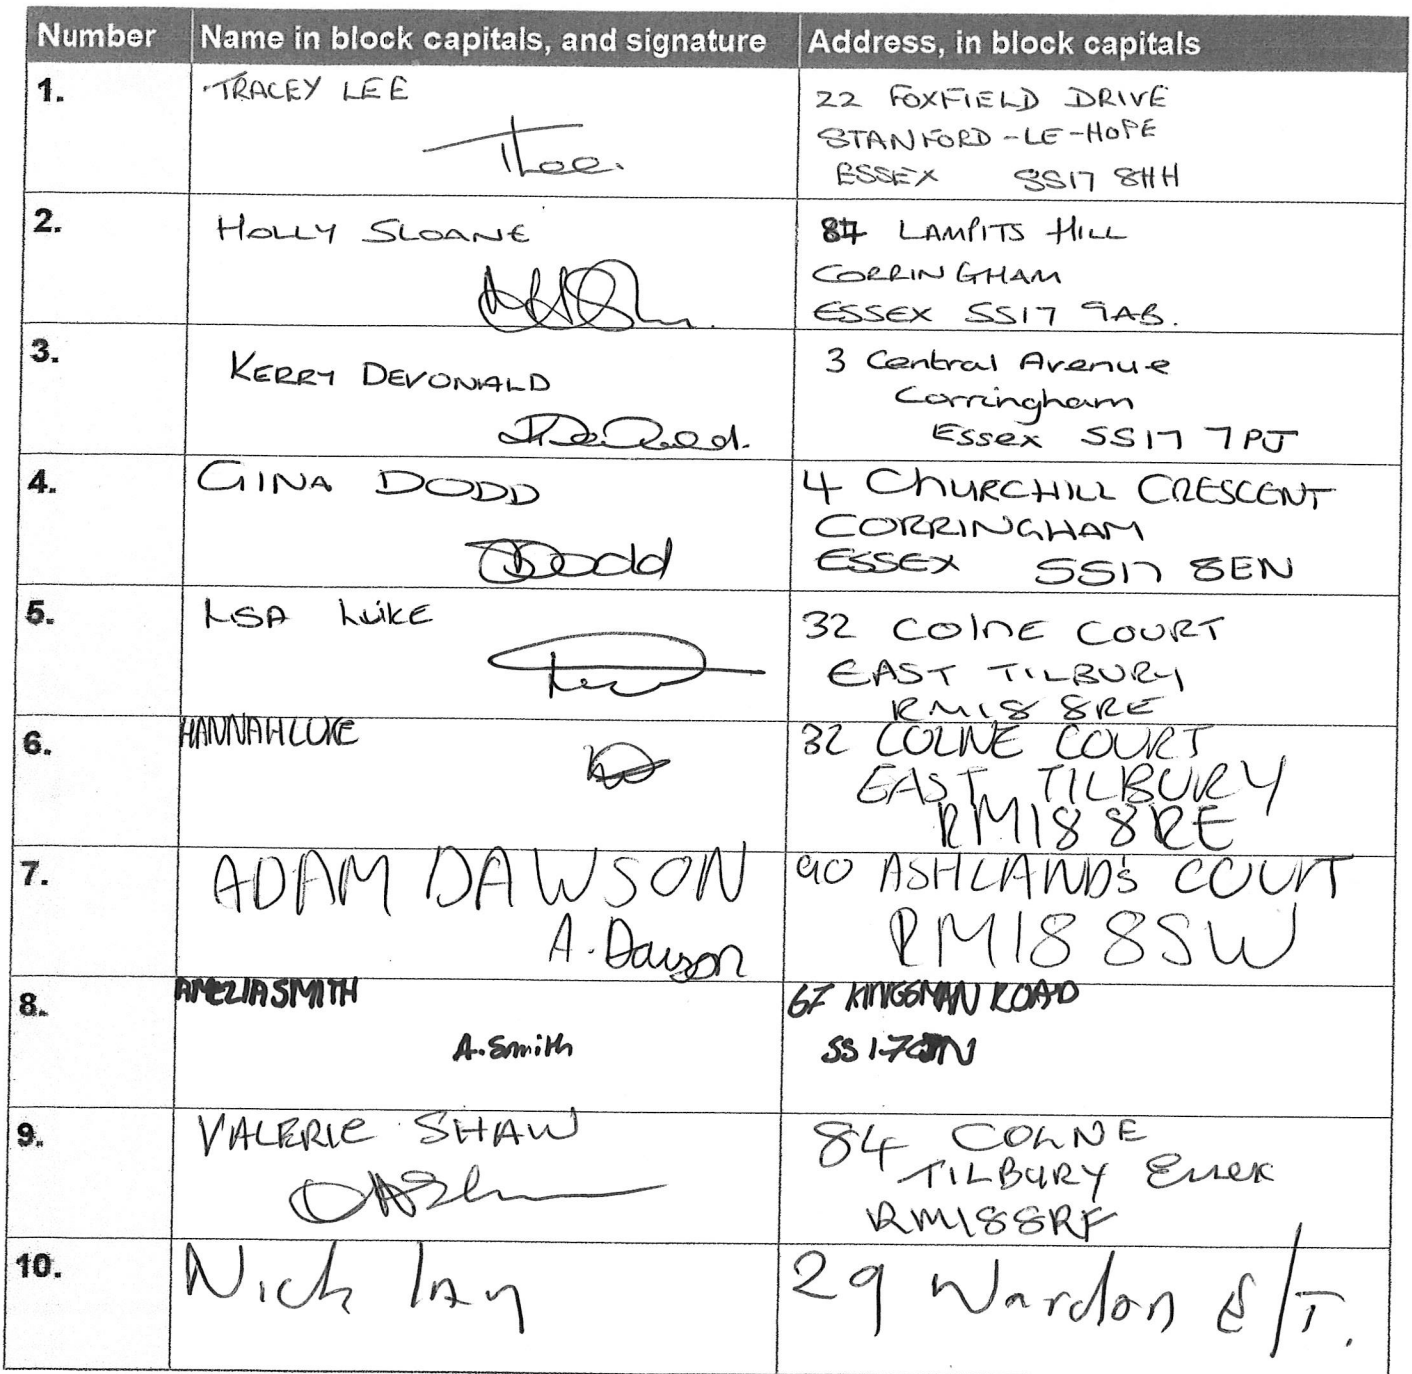 Number Name in block capitals, and signature Address, in block capitals
1. TRACEY LEE 22 FOXFIELD DRIVE
STANFORD-LE-HOPE
TLee. ESSEX SS17 8HH
2. HOLLY SLOANE 84 LAMPITS HILL
CORRINGHAM
ESSEX SS17 9AB.
3. KERRY DEVONALD 3 Central Avenue
Corringham
Essex SS17 7PJ
4. GINA DODD 4 CHURCHILL CRESCENT
CORRINGHAM
GDodd ESSEX SS17 8EN
5. LISA LUKE 32 COlnE COURT
EAST TILBURY
RM18 8RE
6. HANNAH LUKE 32 COLNE COURT
EAST TILBURY
RM18 8RE
7. ADAM DAWSON 90 ASHLANDS COURT
A. Dawson RM18 8SW
8. AMELIA SMITH 67 KINGSMAN ROAD
A. Smith SS17
9. VALERIE SHAW 84 COLNE
TILBURY Essex
RM188RF
10. Nick 29 Wardon E/T.